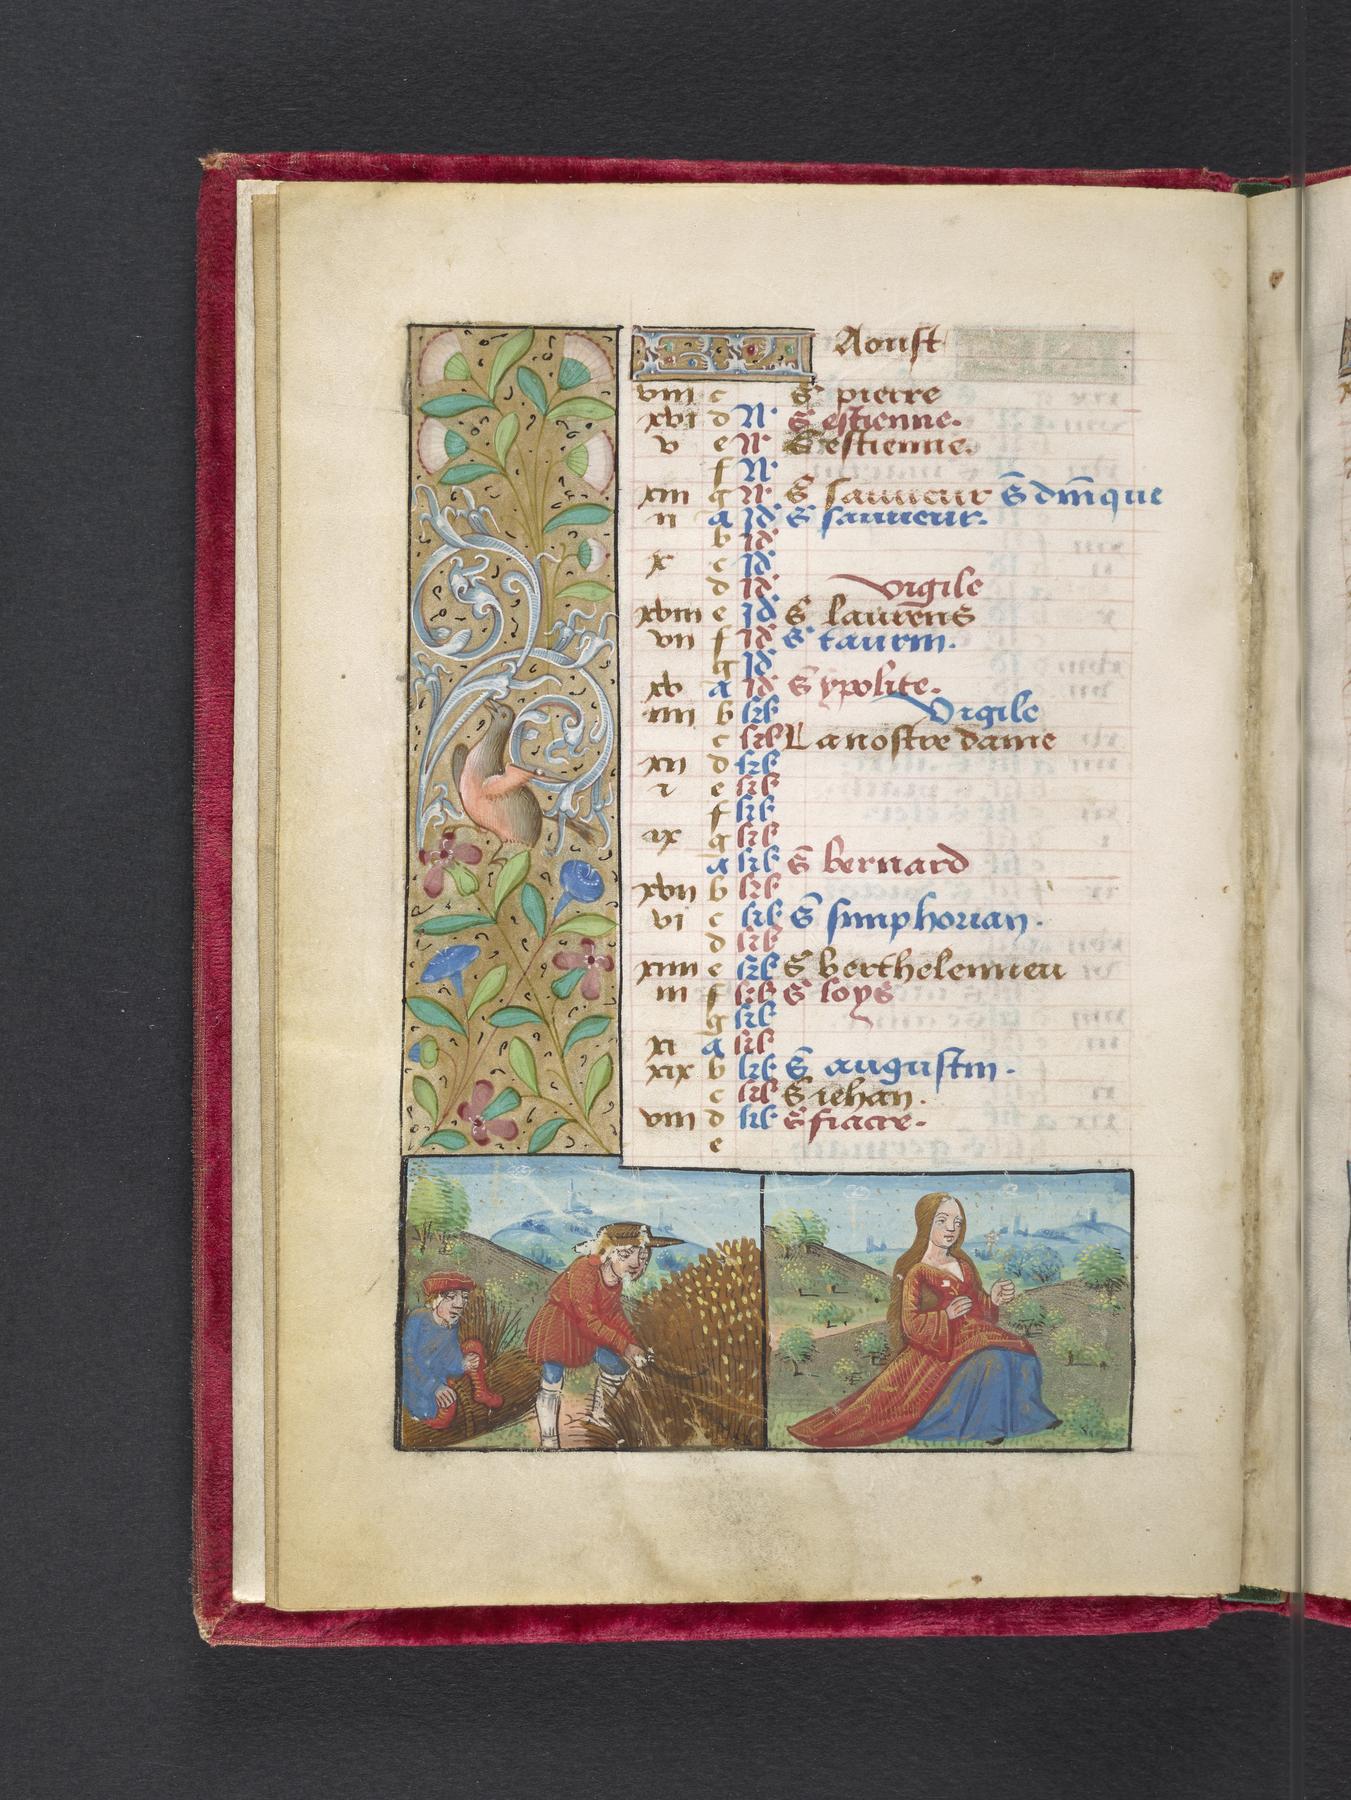 Aoust
viii c S pierre
xvi d N S estienne.
v e N S estienne.
f N
xiii g N S sauueur S dm̄que
ii a Id S sauueur.
b Id
x c Id
d Id vigile
xviii e Id S laurens
vii f Id S taurin.
g Id
xv a Id S ypolite.
iiii b klr Vigile
c klr La nostre dame
xii d klr
i e klr
f klr
ix g klr
a klr S bernard
xvii b klr
vi c klr S simphorian.
d klr
xiiii e klr S berthelemieu
iii f klr S loys
g klr
xi a klr
xix b klr S augustin.
c klr S iehan.
viii d klr S fiacre.
e